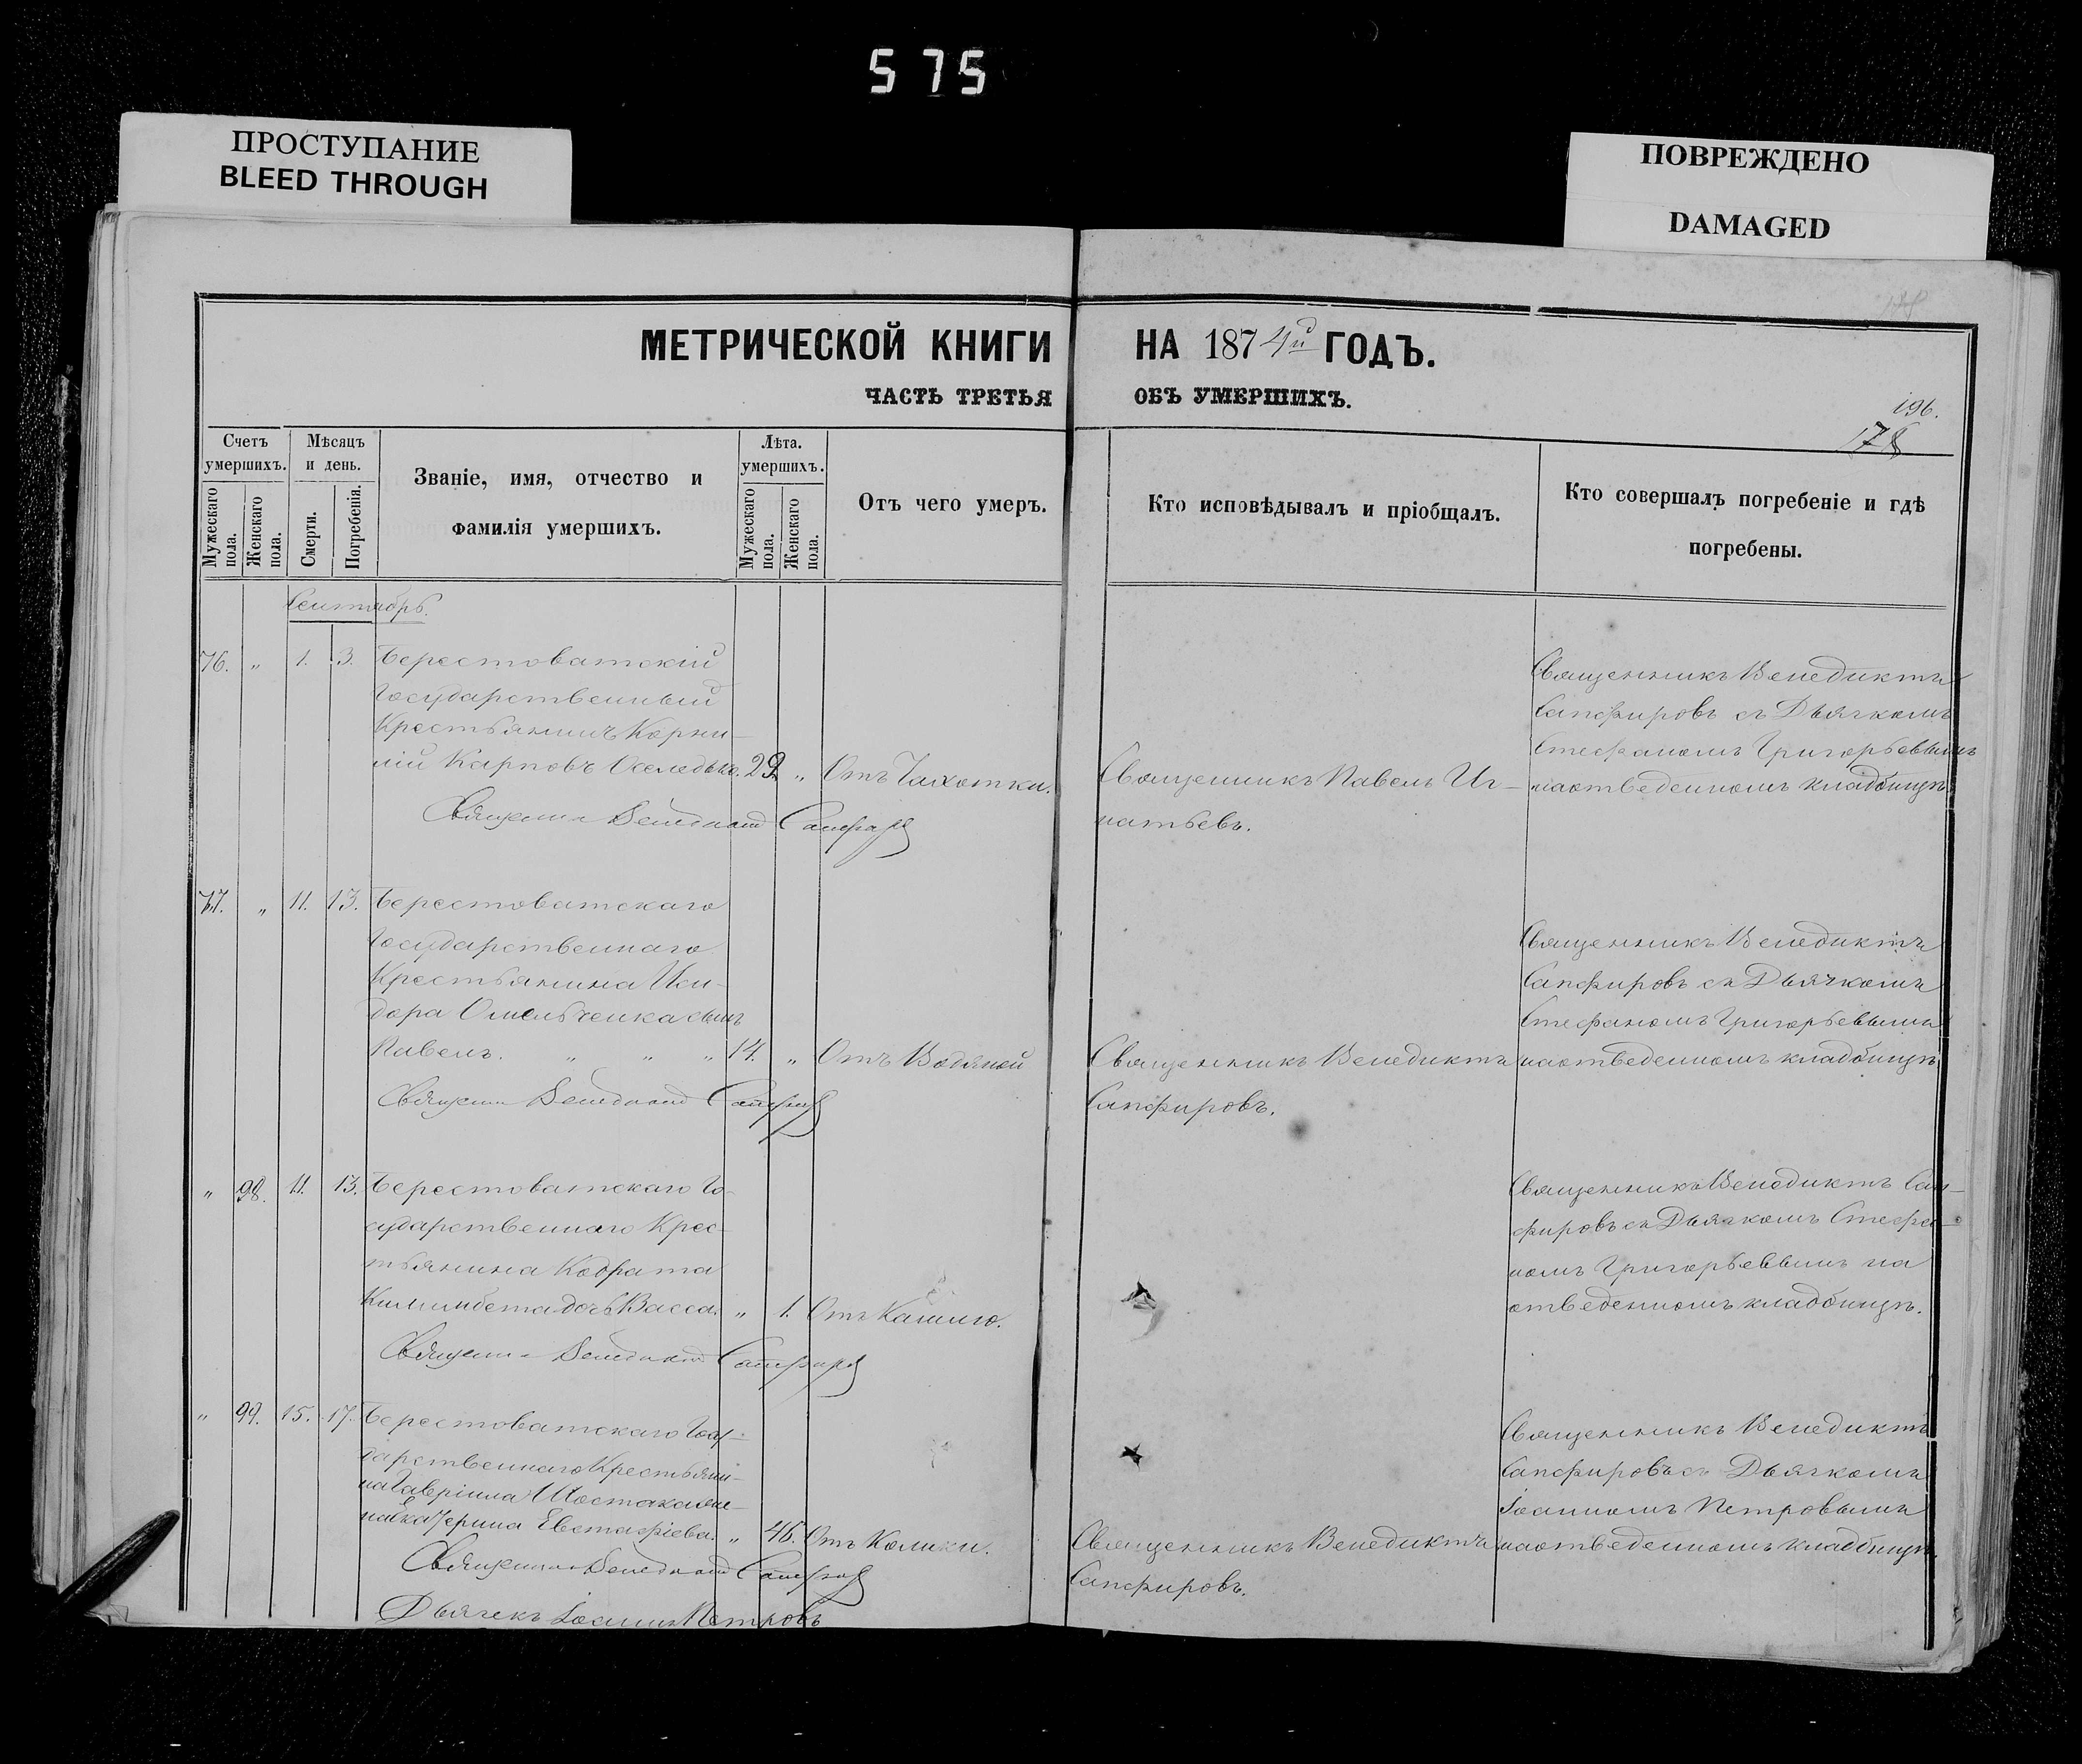 575
ПРОСТУПАНИЕ
BLEED THROUGH
ПОВРЕЖДЕНО
DAMAGED
МЕТРИЧЕСКОЙ КНИГИ НА 1874й ГОДЪ.
ЧАСТЬ ТРЕТЬЯ ОБЪ УМЕРШИХЪ.
196.
178
Счетъ умершихъ.
Мужескаго пола.
Женскаго пола.
Мѣсяцъ и день.
Смерти.
Погребенія.
Званіе, имя, отчество и
фамилія умершихъ.
Лѣта.
умершихъ.
Мужескаго пола.
Женскаго пола.
Отъ чего умеръ.
Кто исповѣдывалъ и пріобщалъ.
Кто совершалъ погребеніе и гдѣ
погребены.
Сентябрь.
76. " 1. 3. Берестоватскій
Государственный
Крестьянинъ Корни-
лій Карповъ Оселедько. 29 " Отъ Чахотки.
Священникъ Венедиктъ Сапфировъ
Священникъ Павелъ Иг-
натьевъ.
Священникъ Венедиктъ
Сапфировъ съ Дьячкомъ
Стефаномъ Григорьевымъ
на отведенномъ кладбищѣ.
77. " 11. 13. Берестоватскаго
Государственнаго
Крестьянина Иси-
дора Омельченка сынъ
Павелъ. " " " 14. " Отъ Водяной
Священникъ Венедиктъ Сапфировъ
Священникъ Венедиктъ
Сапфировъ.
Священникъ Венедиктъ
Сапфировъ съ Дьячкомъ
Стефаномъ Григорьевымъ
на отведенномъ кладбищѣ
" 98. 11. 13. Берестоватскаго Го-
сударственнаго Крес-
тьянина Кодрата
дочь Васса. " 1. Отъ Кашлю.
Священникъ Венедиктъ Сапфировъ
Священникъ Венедиктъ Сап-
фировъ съ Дьячкомъ Стефа-
номъ Григорьевымъ на
отведенномъ кладбищѣ.
" 99. 15. 17. Берестоватскаго Госу-
дарственнаго Крестьяни-
на Гавріила Шостака же-
на Екатерина Евстафіева. " 46. Отъ Колики.
Священникъ Венедиктъ Сапфировъ
Дьячекъ Іоаннъ Петровъ
Священникъ Венедиктъ
Сапфировъ.
Священникъ Венедиктъ
Сапфировъ съ Дьячкомъ
Іоанномъ Петровымъ
на отведенномъ кладбищѣ.